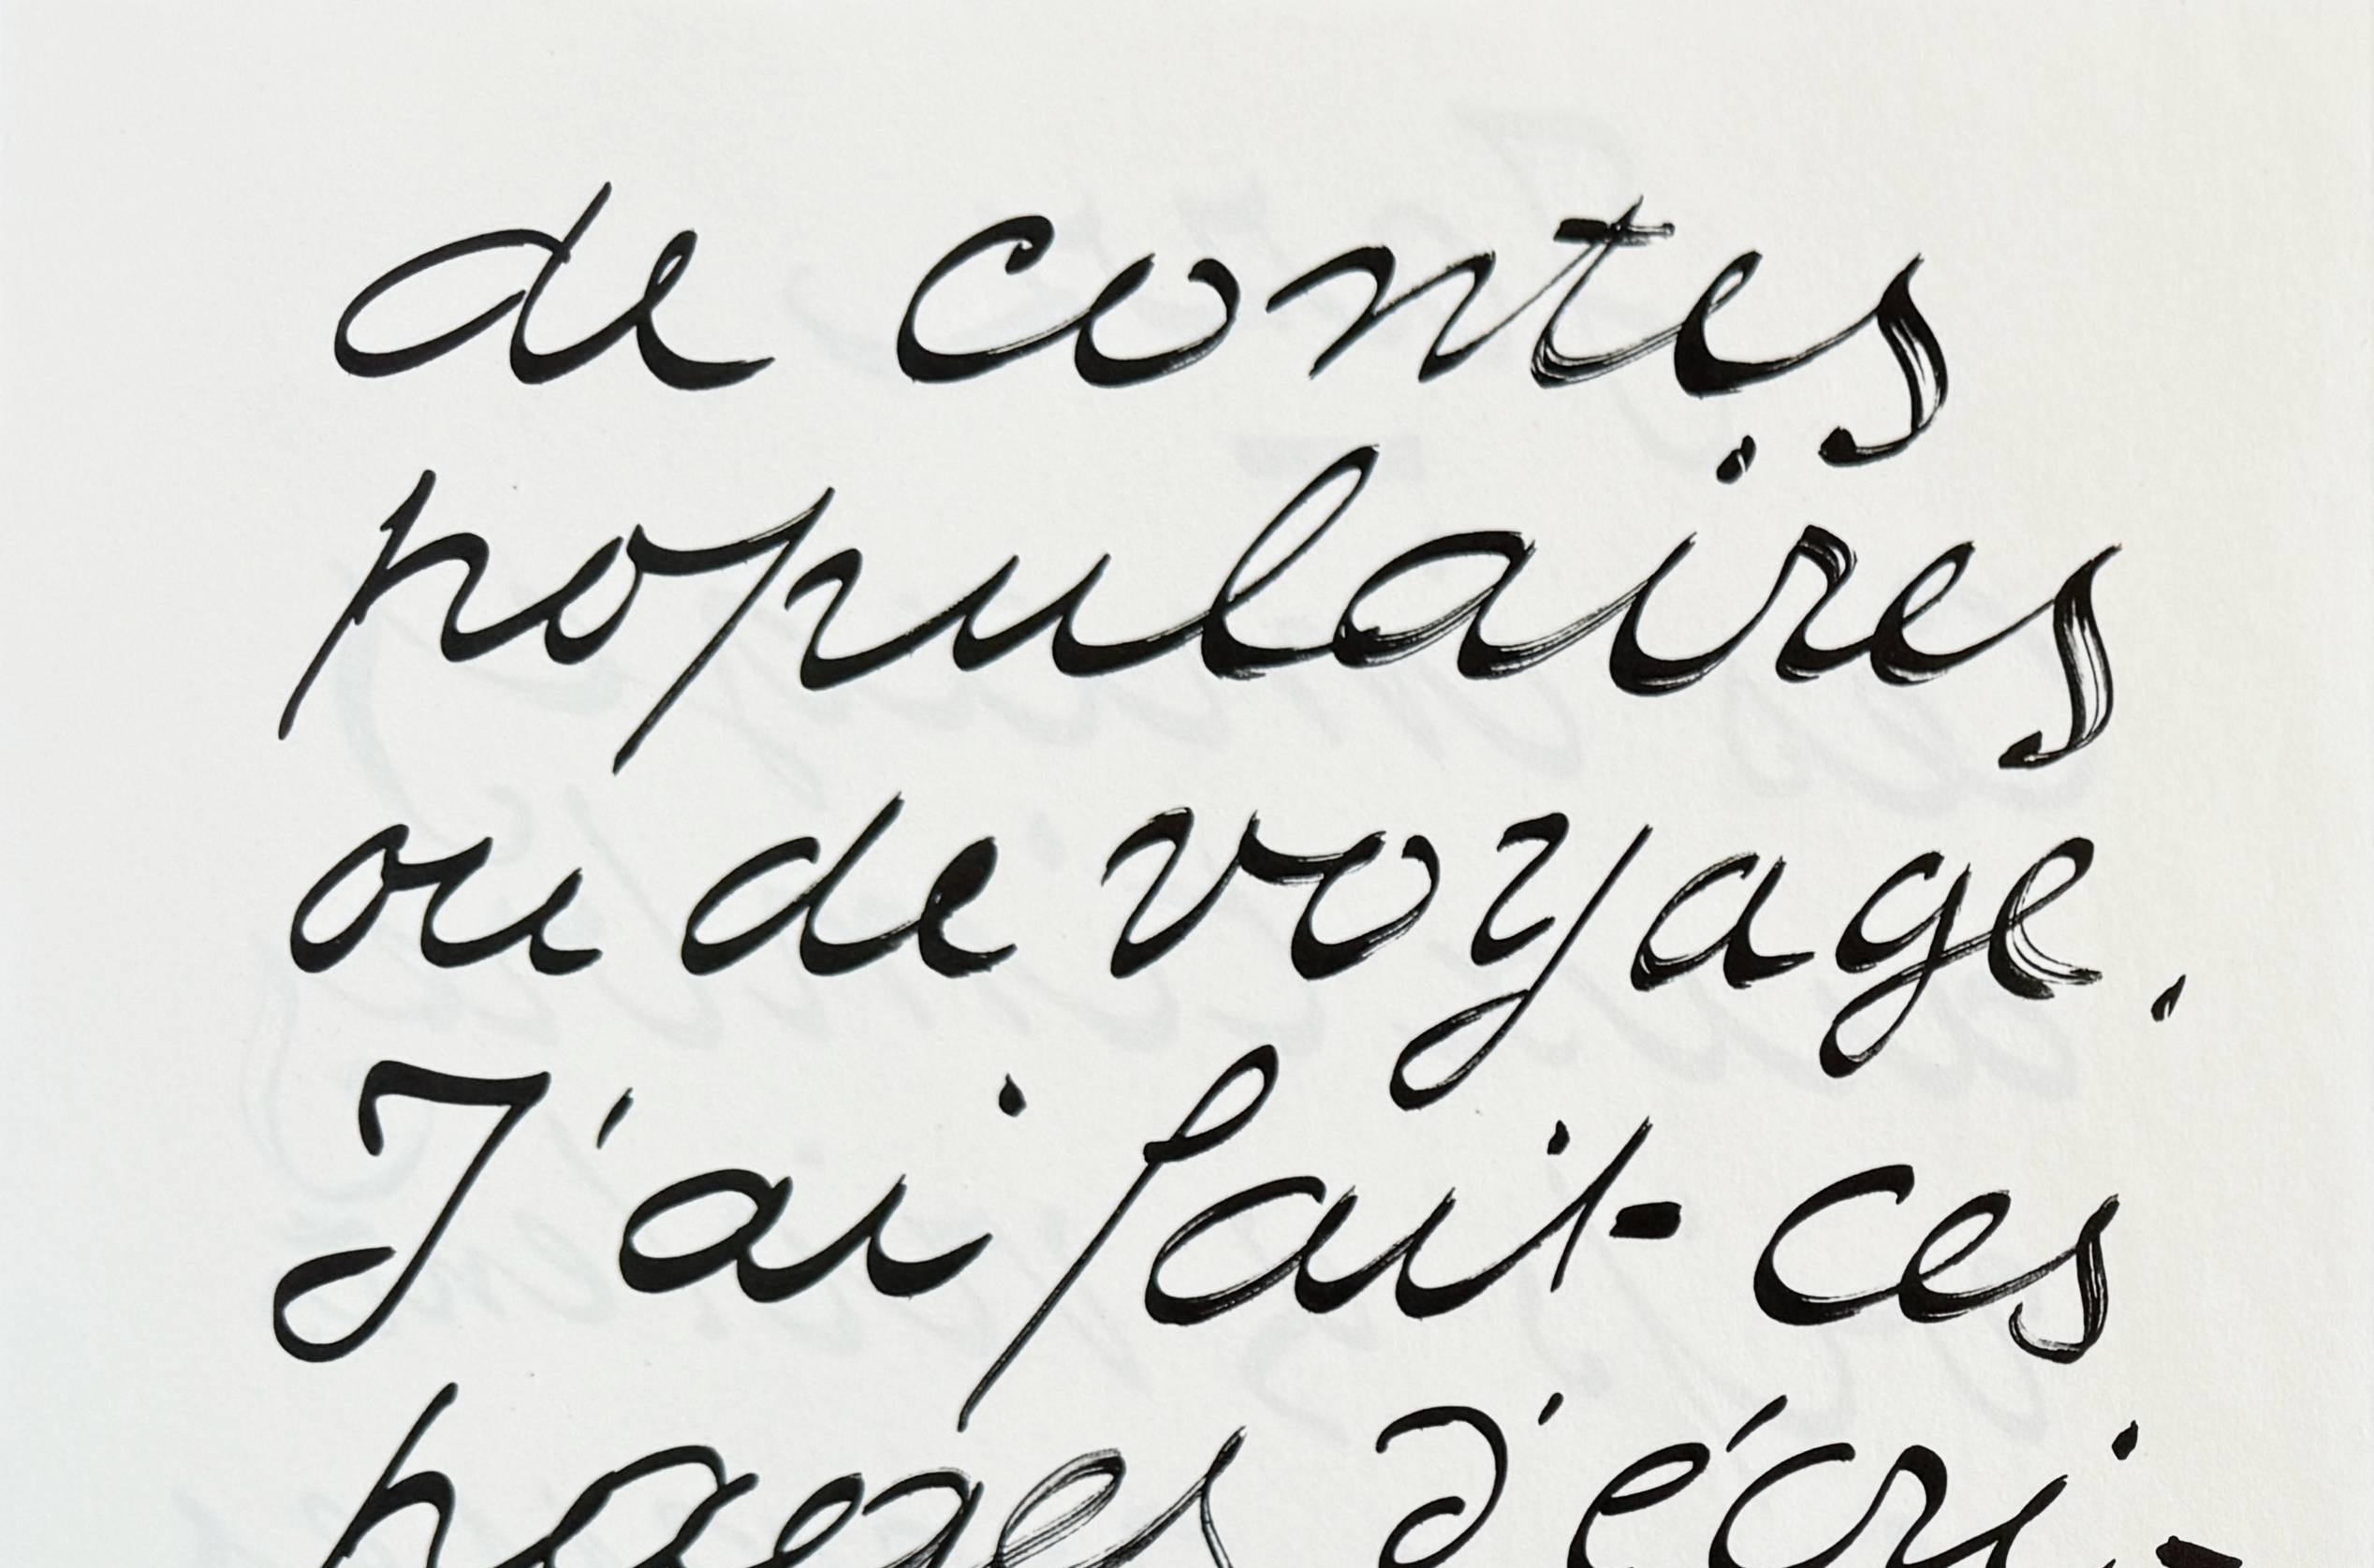 de contes
populaires
ou de voyage.
J'ai fait ces
pages d'écri-